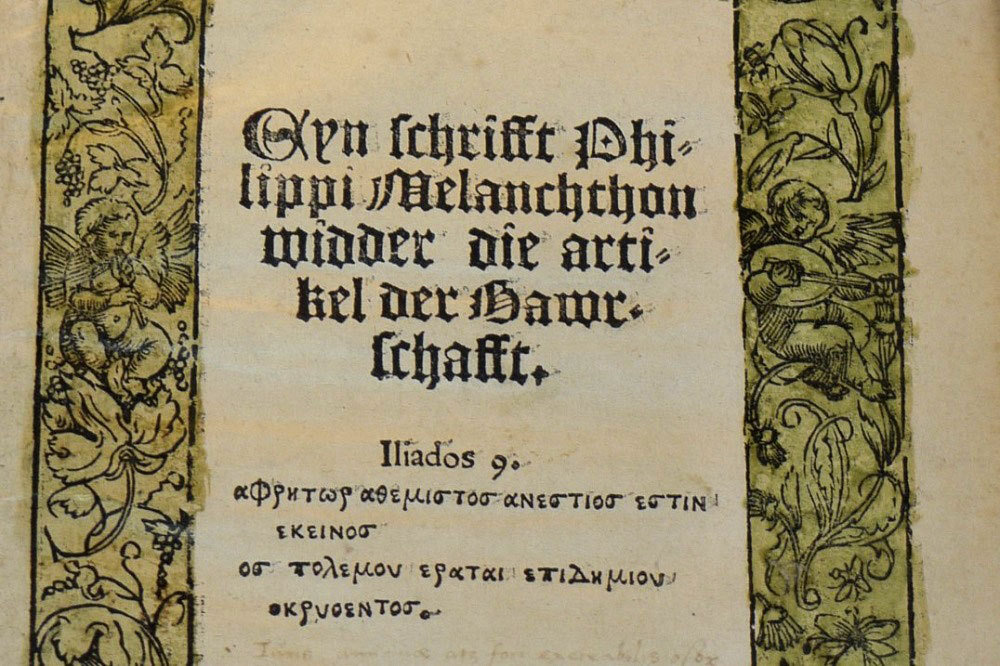 Eyn schrifft Phi-
lippi Melanchthon
widder die arti-
kel der Bawr-
schafft.
Iliados 9.
αφρητωρ αθεμιστος ανεστιος εστιν
εκεινος
ος πολεμου εραται επιδημιου
οκρυοεντος.